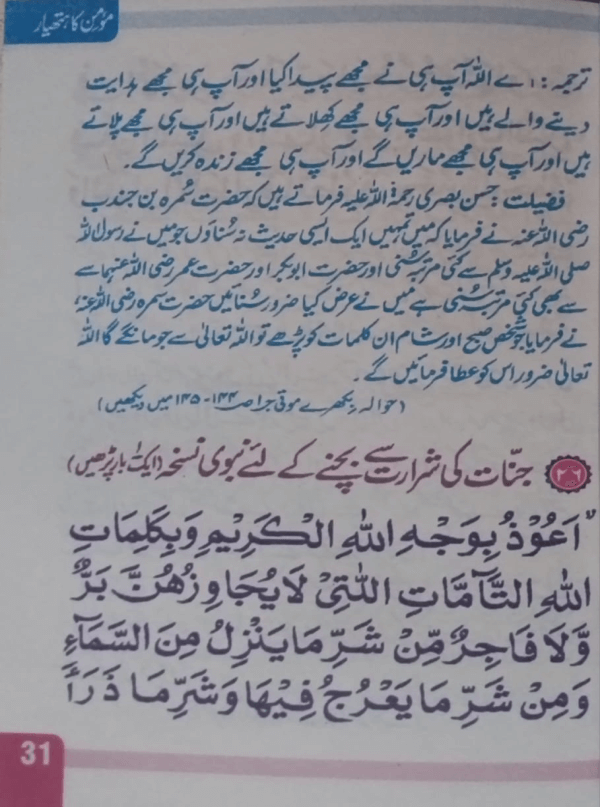 مؤمن کا ہتھیار
ترجمہ: اے اللہ آپ ہی نے مجھے پیدا کیا اور آپ ہی مجھے ہدایت
دینے والے ہیں اور آپ ہی مجھے کھلاتے ہیں اور آپ ہی مجھے پلاتے
ہیں اور آپ ہی مجھے ماریں گے اور آپ ہی مجھے زندہ کریں گے۔
فضیلت: حسن بصری رحمۃ اللہ علیہ فرماتے ہیں کہ حضرت سُمرہ بن جندب
رضی اللہ عنہ نے فرمایا کہ میں تمہیں ایک ایسی حدیث نہ سُناؤں جو میں نے رسول اللہ
صلی اللہ علیہ وسلم سے کئی مرتبہ سُنی اور حضرت ابوبکر اور حضرت عمر رضی اللہ عنہما سے
سے بھی کئی مرتبہ سُنی ہے میں نے عرض کیا ضرور سُنائیں حضرت سمرہ رضی اللہ عنہ،
نے فرمایا جو شخص صبح اور شام ان کلمات کو پڑھے تو اللہ تعالیٰ سے جو مانگے گا اللہ
تعالیٰ ضرور اس کو عطا فرمائیں گے۔
(حوالہ بکھرے موتی جرا ص ۱۴۴-۱۴۵ میں دیکھیں)
۲۶ جنّات کی شرارت سے بچنے کے لئے نبوی نسخہ (ایک بار پڑھیں)
" اَعُوْذُ بِوَجْهِ اللهِ الْكَرِيْمِ وَبِكَلِمَاتِ
اللهِ التَّآمَّاتِ اللَّتِىْ لَا يُجَاوِزُهُنَّ بَرٌّ
وَّلَا فَاجِرٌ مِّنْ شَرِّ مَا يَنْزِلُ مِنَ السَّمَآءِ
وَمِنْ شَرِّ مَا يَعْرُجُ فِيْهَا وَشَرِّ مَا ذَرَأَ
31